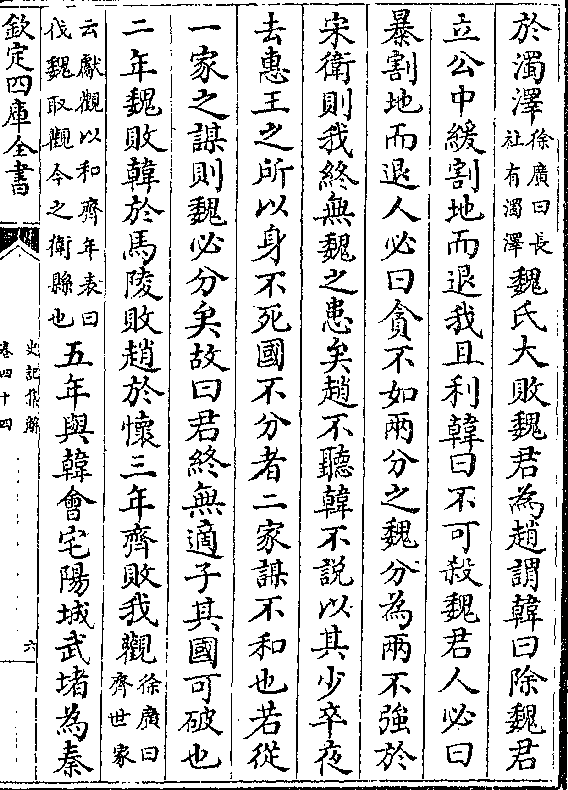 於濁澤徐廣曰長社有濁澤魏氏大敗魏君為趙謂韓曰除魏君
立公中緩割地而退我且利韓曰不可殺魏君人必曰
暴割地而退人必曰貪不如兩分之魏分為兩不強於
宋衛則我終無魏之患矣趙不聽韓不說以其少卒夜
去惠王之所以身不死國不分者二家謀不和也若從
一家之謀則魏必分矣故曰君終無適子其國可破也
二年魏敗韓於馬陵敗趙於懷三年齊敗我觀徐廣曰齊世家
云獻觀以和齊年表曰伐魏取觀今之衛縣也五年與韓會宅陽城武堵為秦
欽定四庫全書
史記集解
卷四十四
六